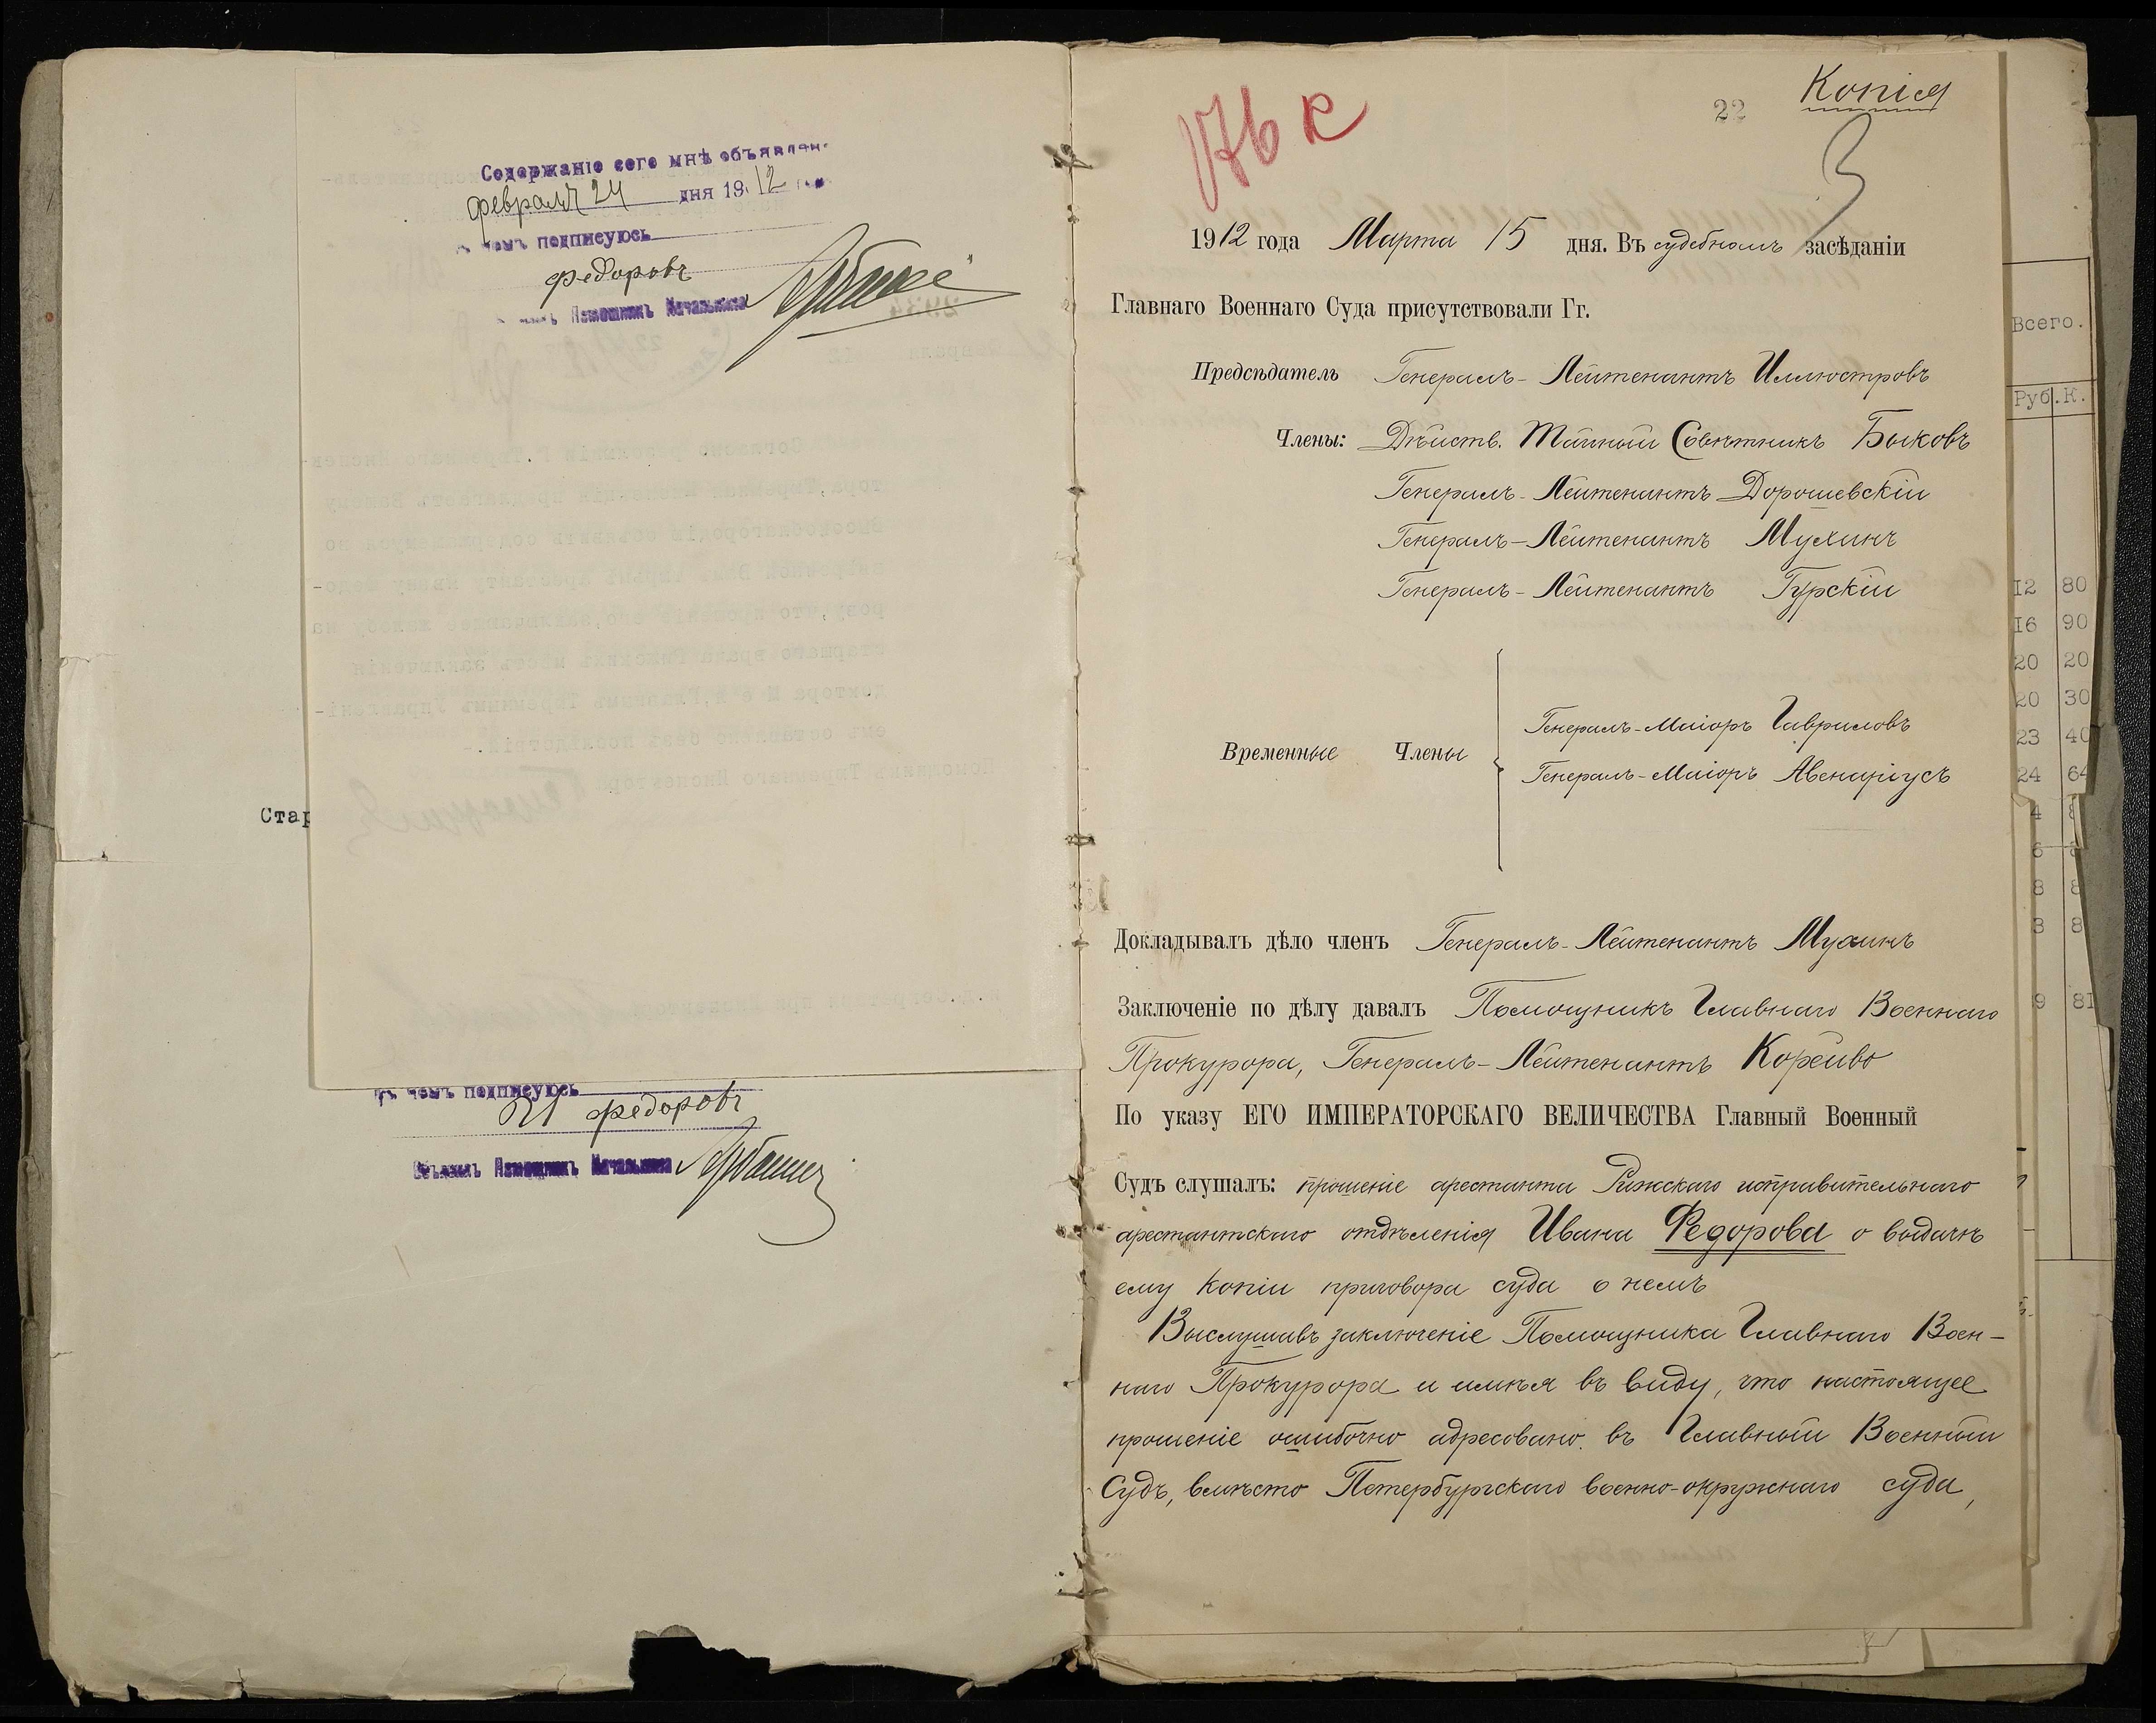 Содержаніе сего мнѣ объявлен
февраля 24 дня 1912
чемъ подписуюсь
Федоровъ
Помощникъ Начальника
Стар
чемъ подписуюсь
И Федоровъ
Помощникъ Начальника
176 к
22
Копія
1912 года Марта 15 дня. Въ судебномъ засѣданіи
Главнаго Военнаго Суда присутствовали Гг.
Предсѣдатель Генералъ-Лейтенантъ Иллюстровъ
Члены: Дѣйств. Тайный Совѣтникъ Быковъ
Генералъ-Лейтенантъ Дорошевскій
Генералъ-Лейтенантъ Мухинъ
Генералъ-Лейтенантъ Гурскій
Временные Члены
Генералъ-Маіоръ Гавриловъ
Генералъ-Маіоръ Авенаріусъ
Докладывалъ дѣло членъ Генералъ-Лейтенантъ Мухинъ
Заключеніе по дѣлу давалъ Помощникъ Главнаго Военнаго
Прокурора, Генералъ-Лейтенантъ Корейво
По указу ЕГО ИМПЕРАТОРСКАГО ВЕЛИЧЕСТВА Главный Военный
Судъ слушалъ: прошеніе арестанта Рижскаго исправительнаго
арестантскаго отдѣленія Ивана Федорова о выдачѣ
ему копіи приговора суда о немъ
Выслушавъ заключеніе Помощника Главнаго Воен-
наго Прокурора и имѣя въ виду, что настоящее
прошеніе ошибочно адресовано въ Главный Военный
Судъ, вмѣсто Петербургскаго военно-окружнаго суда,
Всего.
Руб. К.
12 80
16 90
20 20
20 30
23 40
24 64
4 8
6
8 8
3 8
9 81